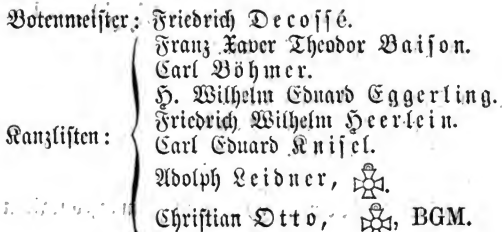 Botenmeister: Friedrich Decossé.
Franz Xaver Theodor Baison.
Carl Böhmer.
H. Wilhelm Eduard Eggerling.
Friedrich Wilhelm Heerlein.
Kanzlisten: Carl Eduard Knisel.
Adolph Leidner, .
Christian Otto, , BGM.